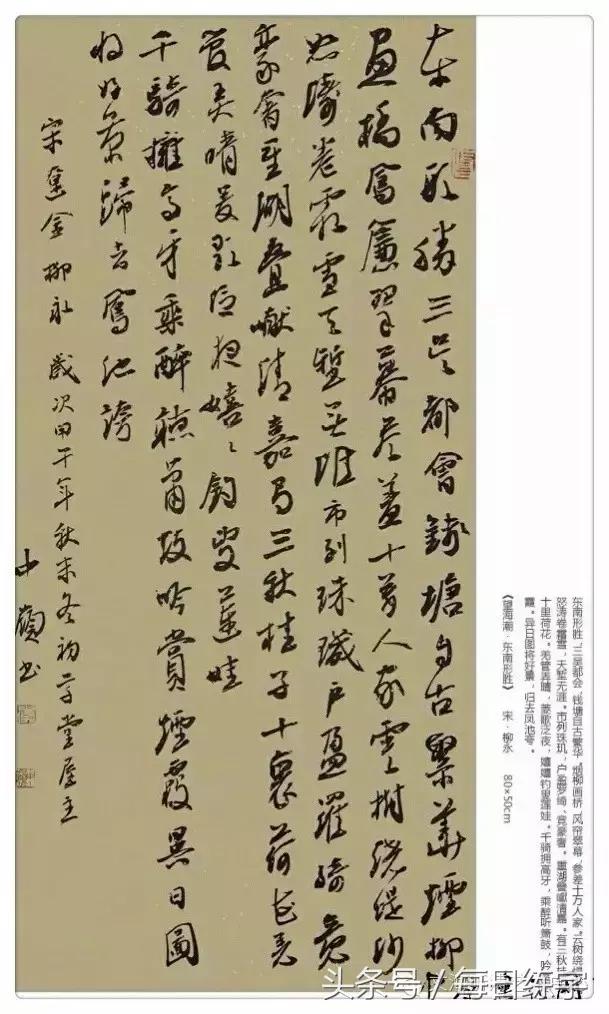 东南形胜三吴都會錢塘自古繁華煙柳
畫橋風簾翠幕参差十萬人家雲樹绕堤沙
怒濤卷霜雪天塹无涯市列珠璣户盈羅綺竞
豪奢重湖疊巘清嘉有三秋桂子十裏荷花羌
管弄晴菱歌泛夜嬉嬉釣叟蓮娃
千騎擁高牙乘醉聽簫鼓吟賞煙霞異日圖
将好景歸去鳳池誇
宋 柳永 歲次甲午年秋末冬初 堂屋主
书
东南形胜,三吴都会,钱塘自古繁华,烟柳画桥,风帘翠幕,参差十万人家。云树绕堤
怒涛卷霜雪,天堑无涯。市列珠玑,户盈罗绮、竞豪奢。重湖叠巘清嘉。有三秋桂
十里荷花。羌管弄晴,菱歌泛夜,嬉嬉钓叟莲娃。千骑拥高牙,乘醉听箫鼓,吟
霞。异日图将好景,归去凤池夸。
《望海潮·东南形胜》 宋·柳永 80×50cm
头条号 / 每日练字